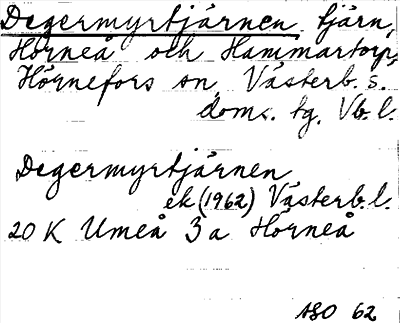 Degermyrtjärnen, tjärn,
Hörneå och Hammartorp,
Hörnefors sn, Västerb. s.
doms. tg, Vb. l.
Degermyrtjärnen
ek (1962) Västerb. l.
20 K Umeå 3 a Hörneå
ASO 62